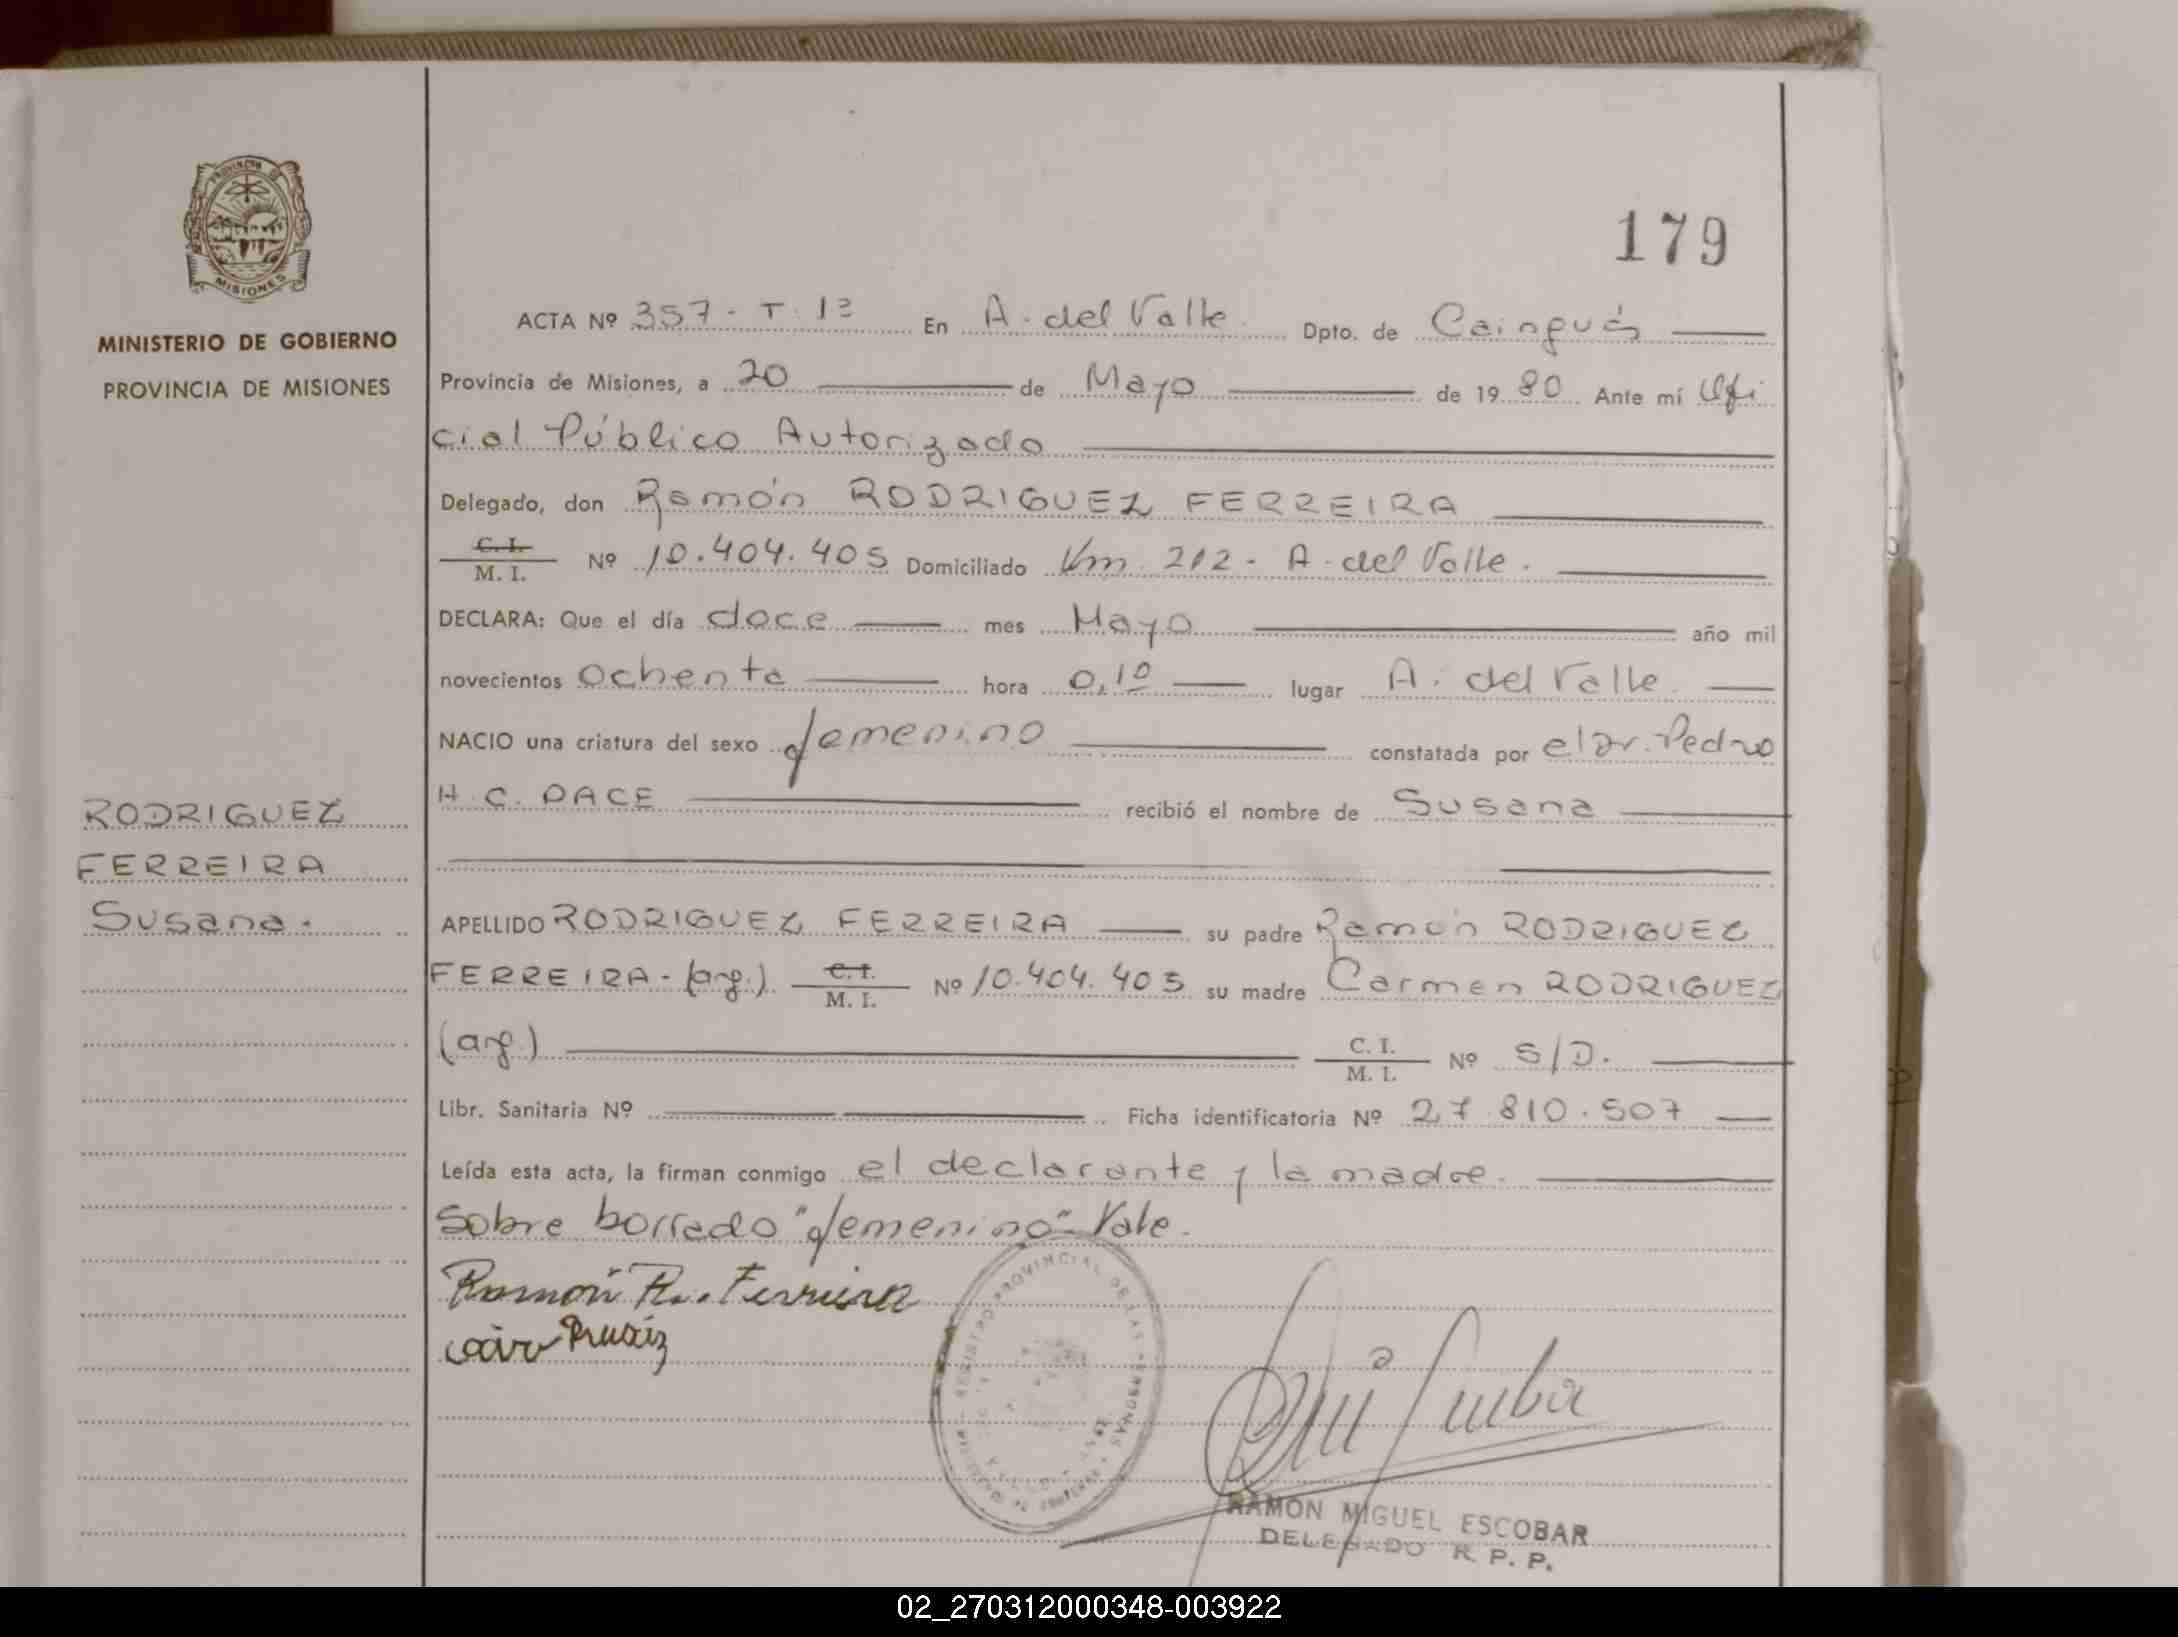 PROVINCIA DE
MISIONES
MINISTERIO DE GOBIERNO
PROVINCIA DE MISIONES
179
ACTA Nº 357 - T. 1º En A. del Valle Dpto. de Cainguás
Provincia de Misiones, a 20 de Mayo de 1980 Ante mí Ofi
cial Público Autorizado
Delegado, don Ramón RODRIGUEZ FERREIRA
C. I. / M. I. Nº 10.404.405 Domiciliado Km. 212 - A. del Valle.
DECLARA: Que el día doce mes Mayo año mil
novecientos ochenta hora 0,10 lugar A. del Valle.
NACIO una criatura del sexo femenino constatada por el Dr. Pedro
H. C. PACE recibió el nombre de Susana
RODRIGUEZ
FERREIRA
Susana.
APELLIDO RODRIGUEZ FERREIRA su padre Ramón RODRIGUEZ
FERREIRA - (arg.) C. I. / M. I. Nº 10.404.405 su madre Carmen RODRIGUEZ
(arg.) C. I. / M. I. Nº S/D.
Libr. Sanitaria Nº Ficha identificatoria Nº 27.810.507
Leída esta acta, la firman conmigo el declarante y la madre.
Sobre borrado "femenino" Vale.
Ramón R. Ferreira
REGISTRO PROVINCIAL DE LAS PERSONAS
RAMON MIGUEL ESCOBAR
DELEGADO R. P. P.
02_270312000348-003922